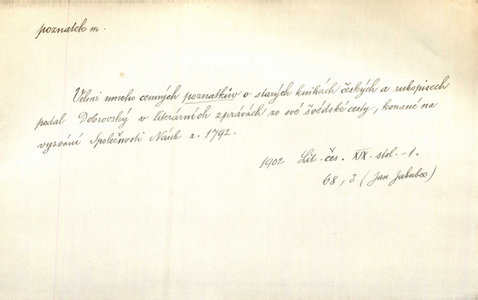 poznatek m.
Velmi mnoho cenných poznatkův o starých knihách českých a rukopisech
podal Dobrovský v literárních zprávách ze své švédské cesty, konané na
vyzvání Společnosti Nauk r. 1792.
1902 Lit. čes. XIX. stol. -1.
68, 3 (Jan Jakubec)